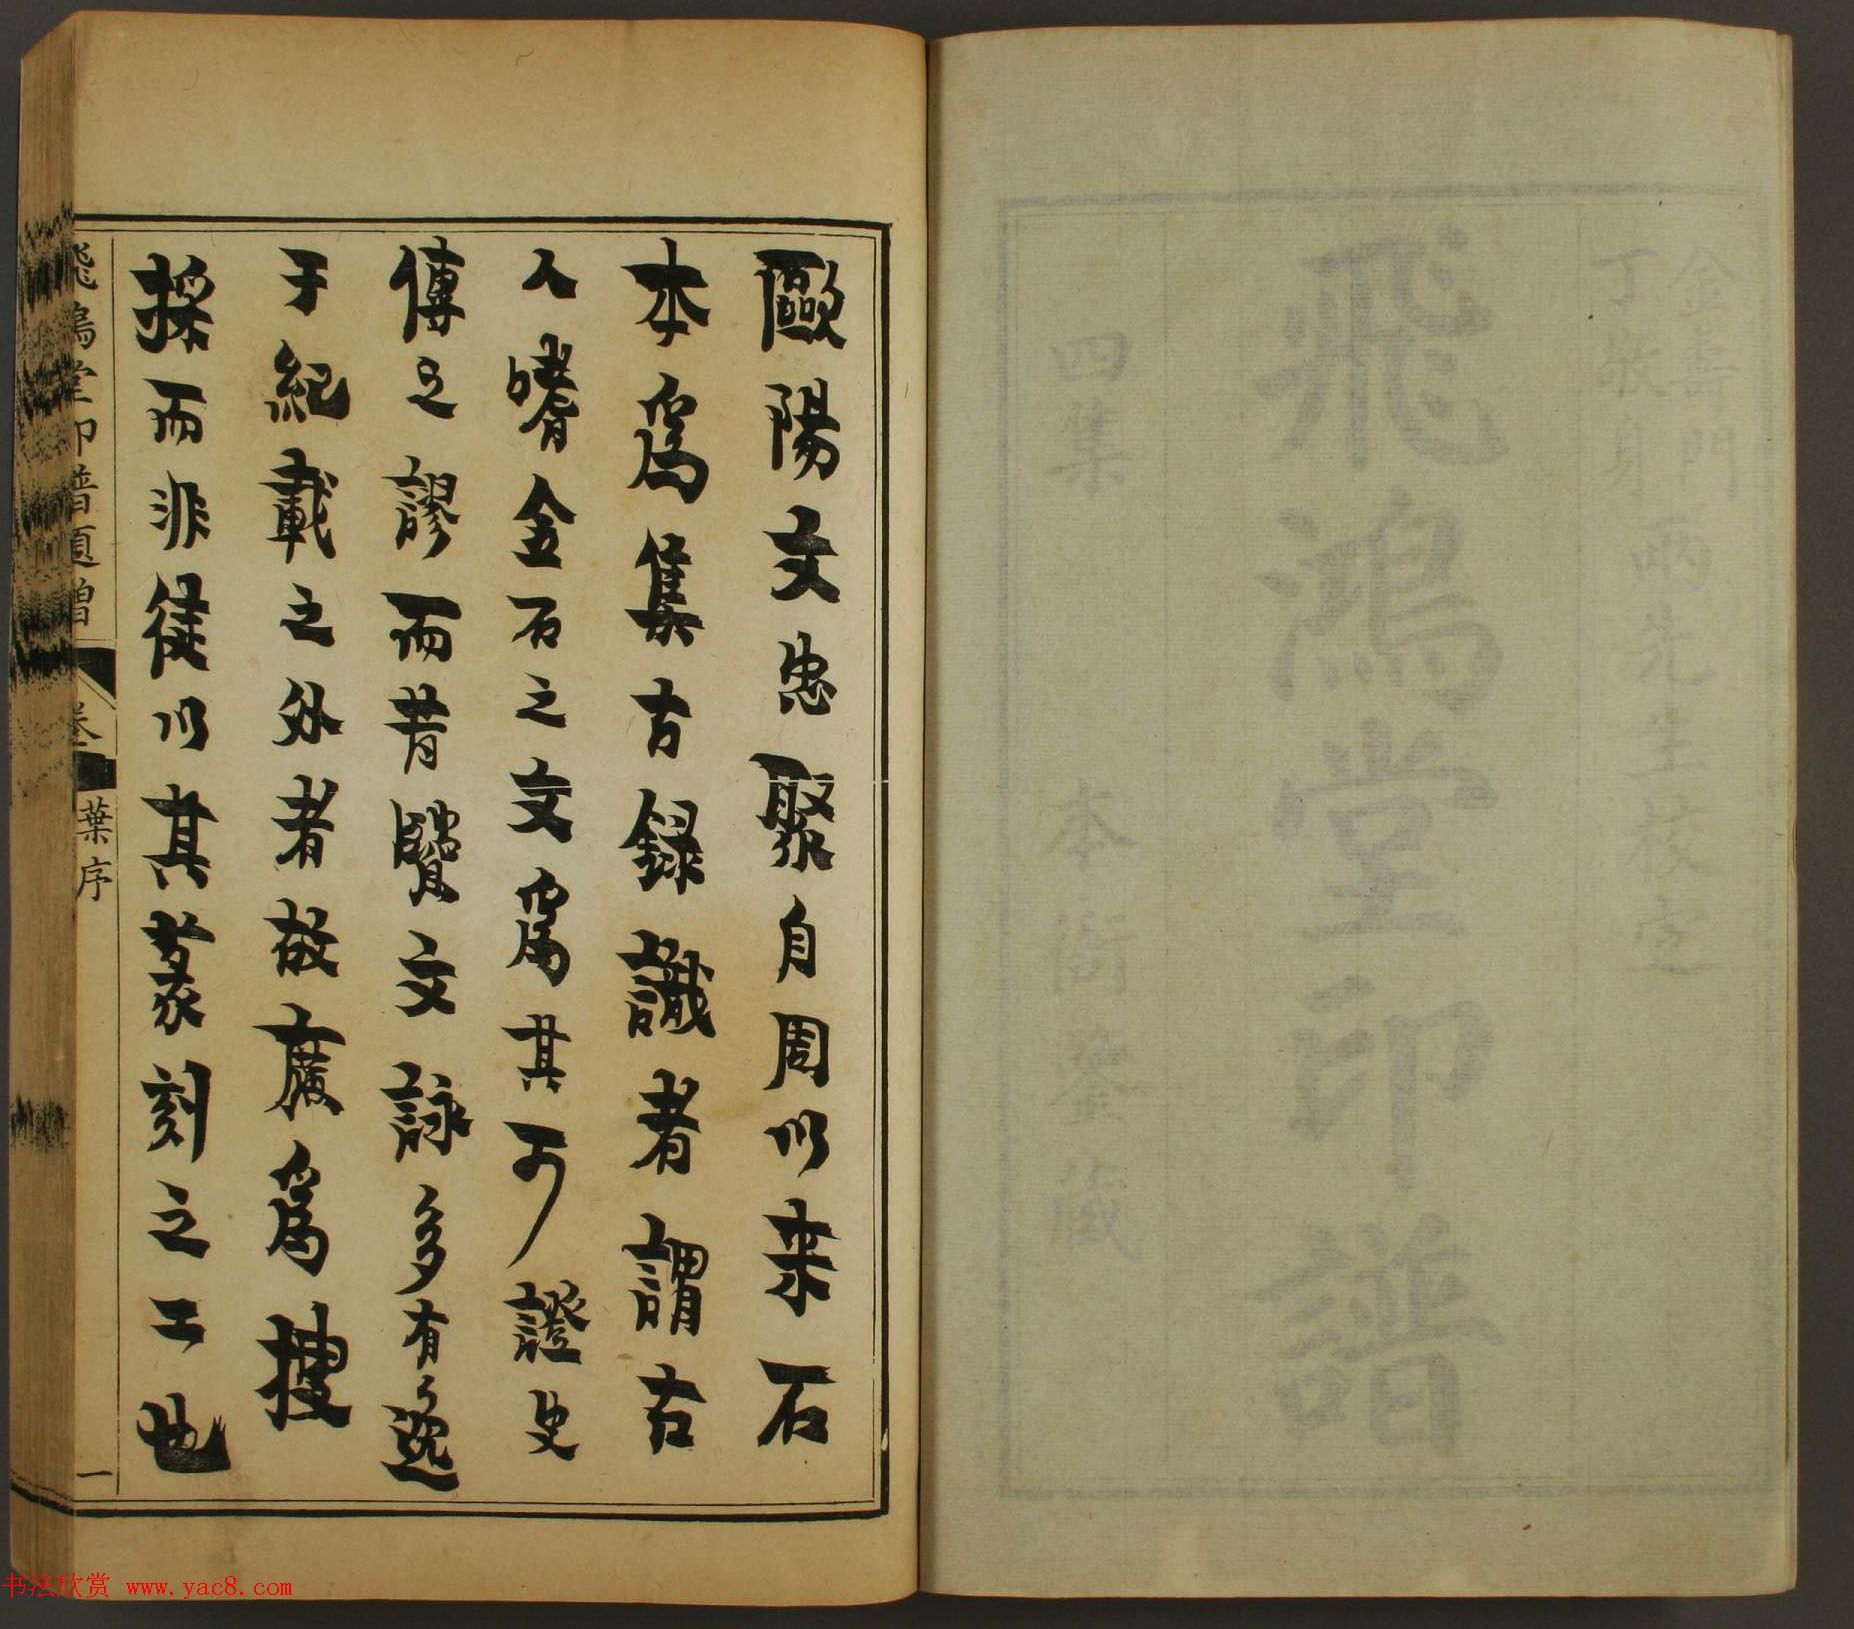 金壽門
丁敬身
兩先生校定
飛鴻堂印譜
四集 本衙藏
歐陽文忠聚自周以來石
本爲集古録識者謂古
人嗜金石之文爲其可證史
傳之謬而昔賢文詠多有逸
于紀載之外者故廣爲搜
採而非徒以其篆刻之工也
飛鴻堂印譜題贈 卷 葉序 一
书法欣赏 www.yac8.com